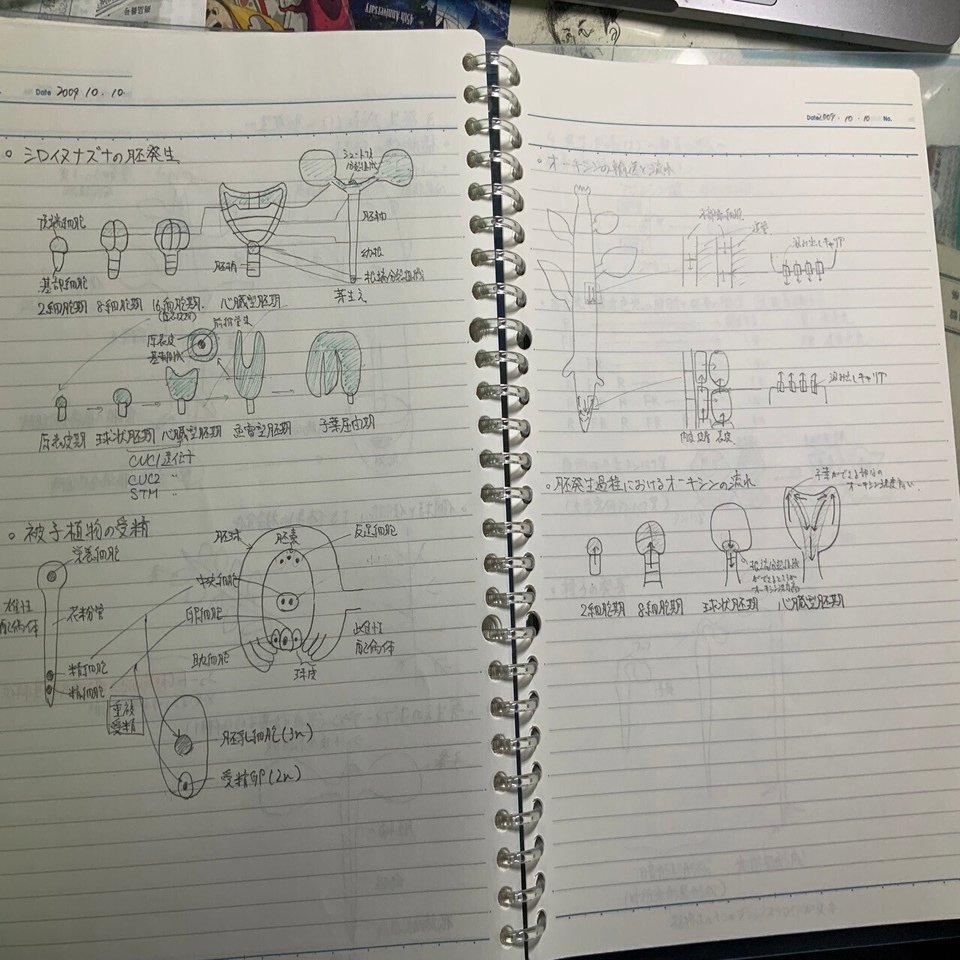 45th Anniversary
Date 2009. 10. 10.
○ シロイヌナズナの胚発生
頂端細胞
基部細胞
胚柄
胚軸
幼根
根端分裂組織
2細胞期 8細胞期 16細胞期 心臓型胚期
芽生え
原表皮
基本組織
原表皮期 球状胚期 心臓型胚期 魚雷型胚期 子葉屈曲期
CUC1遺伝子
CUC2 〃
STM 〃
○ 被子植物の受精
栄養細胞
花粉管
雄性
配偶体
精細胞
精細胞
胚珠
胚嚢
反足細胞
中央細胞
卵細胞
助細胞
珠皮
雌性
配偶体
重複
受精
胚乳細胞(3n)
受精卵(2n)
Date 2009. 10. 10 No.
○ オーキシンの輸送と流れ
汲み出しキャリア
汲み出しキャリア
内皮 皮層 表皮
○ 胚発生過程におけるオーキシンの流れ
子葉ができる部分の
オーキシン濃度高い
根端分裂組織
ができるところの
オーキシン濃度高
2細胞期 8細胞期 球状胚期 心臓型胚期